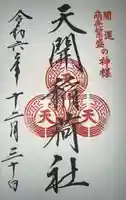 開運
商売繁盛の神様
天開稲荷社
令和六年十二月三十日